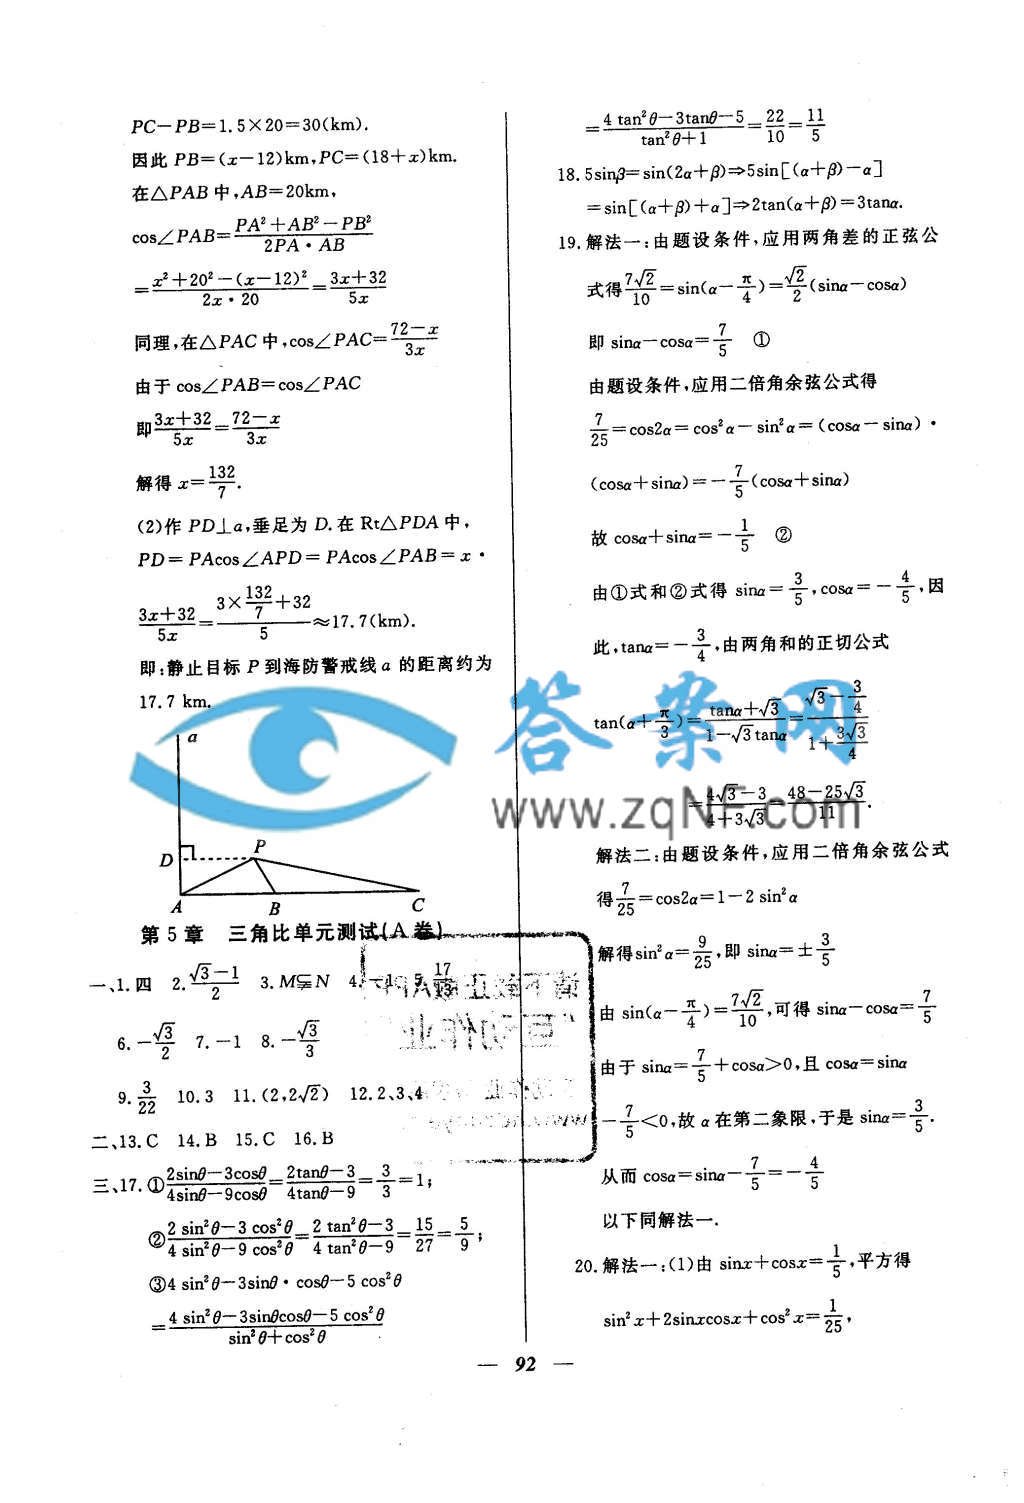 PC－PB＝1.5×20＝30(km).
因此 PB＝(x－12)km,PC＝(18＋x)km.
在△PAB 中,AB＝20km,
cos∠PAB＝(PA²＋AB²－PB²)/(2PA·AB)
＝(x²＋20²－(x－12)²)/(2x·20)＝(3x＋32)/(5x)
同理,在△PAC 中,cos∠PAC＝(72－x)/(3x)
由于 cos∠PAB＝cos∠PAC
即(3x＋32)/(5x)＝(72－x)/(3x)
解得 x＝132/7.
(2)作 PD⊥a,垂足为 D.在 Rt△PDA 中,
PD＝PAcos∠APD＝PAcos∠PAB＝x·
(3x＋32)/(5x)＝(3×132/7＋32)/5≈17.7(km).
即:静止目标 P 到海防警戒线 a 的距离约为
17.7 km.
a
D
P
A
B
C
第 5 章　三角比单元测试(A 卷)
一、1.四　2.(√3－1)/2　3.M⫋N　4.－1　5.17/13
6.－√3/2　7.－1　8.－√3/3
9.3/22　10.3　11.(2,2√2)　12.2、3、4
二、13.C　14.B　15.C　16.B
三、17.①(2sinθ－3cosθ)/(4sinθ－9cosθ)＝(2tanθ－3)/(4tanθ－9)＝3/3＝1;
②(2 sin²θ－3 cos²θ)/(4 sin²θ－9 cos²θ)＝(2 tan²θ－3)/(4 tan²θ－9)＝15/27＝5/9;
③4 sin²θ－3sinθ·cosθ－5 cos²θ
＝(4 sin²θ－3sinθcosθ－5 cos²θ)/(sin²θ＋cos²θ)
＝(4 tan²θ－3tanθ－5)/(tan²θ＋1)＝22/10＝11/5
18.5sinβ＝sin(2α＋β)⇒5sin[(α＋β)－α]
＝sin[(α＋β)＋α]⇒2tan(α＋β)＝3tanα.
19.解法一:由题设条件,应用两角差的正弦公
式得7√2/10＝sin(α－π/4)＝√2/2(sinα－cosα)
即 sinα－cosα＝7/5　①
由题设条件,应用二倍角余弦公式得
7/25＝cos2α＝cos²α－sin²α＝(cosα－sinα)·
(cosα＋sinα)＝－7/5(cosα＋sinα)
故 cosα＋sinα＝－1/5　②
由①式和②式得 sinα＝3/5,cosα＝－4/5,因
此,tanα＝－3/4,由两角和的正切公式
tan(α＋π/3)＝(tanα＋√3)/(1－√3tanα)＝(√3－3/4)/(1＋3√3/4)
＝(4√3－3)/(4＋3√3)＝(48－25√3)/11.
解法二:由题设条件,应用二倍角余弦公式
得7/25＝cos2α＝1－2 sin²α
解得sin²α＝9/25,即 sinα＝±3/5
由 sin(α－π/4)＝7√2/10,可得 sinα－cosα＝7/5
由于 sinα＝7/5＋cosα＞0,且 cosα＝sinα
－7/5＜0,故 α 在第二象限,于是 sinα＝3/5.
从而 cosα＝sinα－7/5＝－4/5
以下同解法一.
20.解法一:(1)由 sinx＋cosx＝1/5,平方得
sin²x＋2sinxcosx＋cos²x＝1/25,
— 92 —
答案网
www.zqNF.com